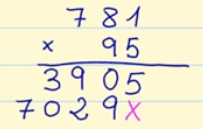 781
× 95
3905
7029X